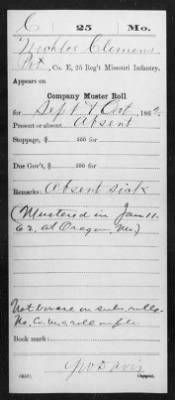 C 25 Mo.
Clemens
Pvt, Co. E, 25 Reg't Missouri Infantry.
Appears on
Company Muster Roll
for Sept & Oct, 1862.
Present or absent Absent
Stoppage, $ 100 for
Due Gov't, $ 100 for
Remarks: Absent sick
(Mustered in Jan 11.
62, at Oregon, Mo)
Not borne on subs. rolls.
No. Co. m.o. roll on file
Book mark:
Davis
Copyist.